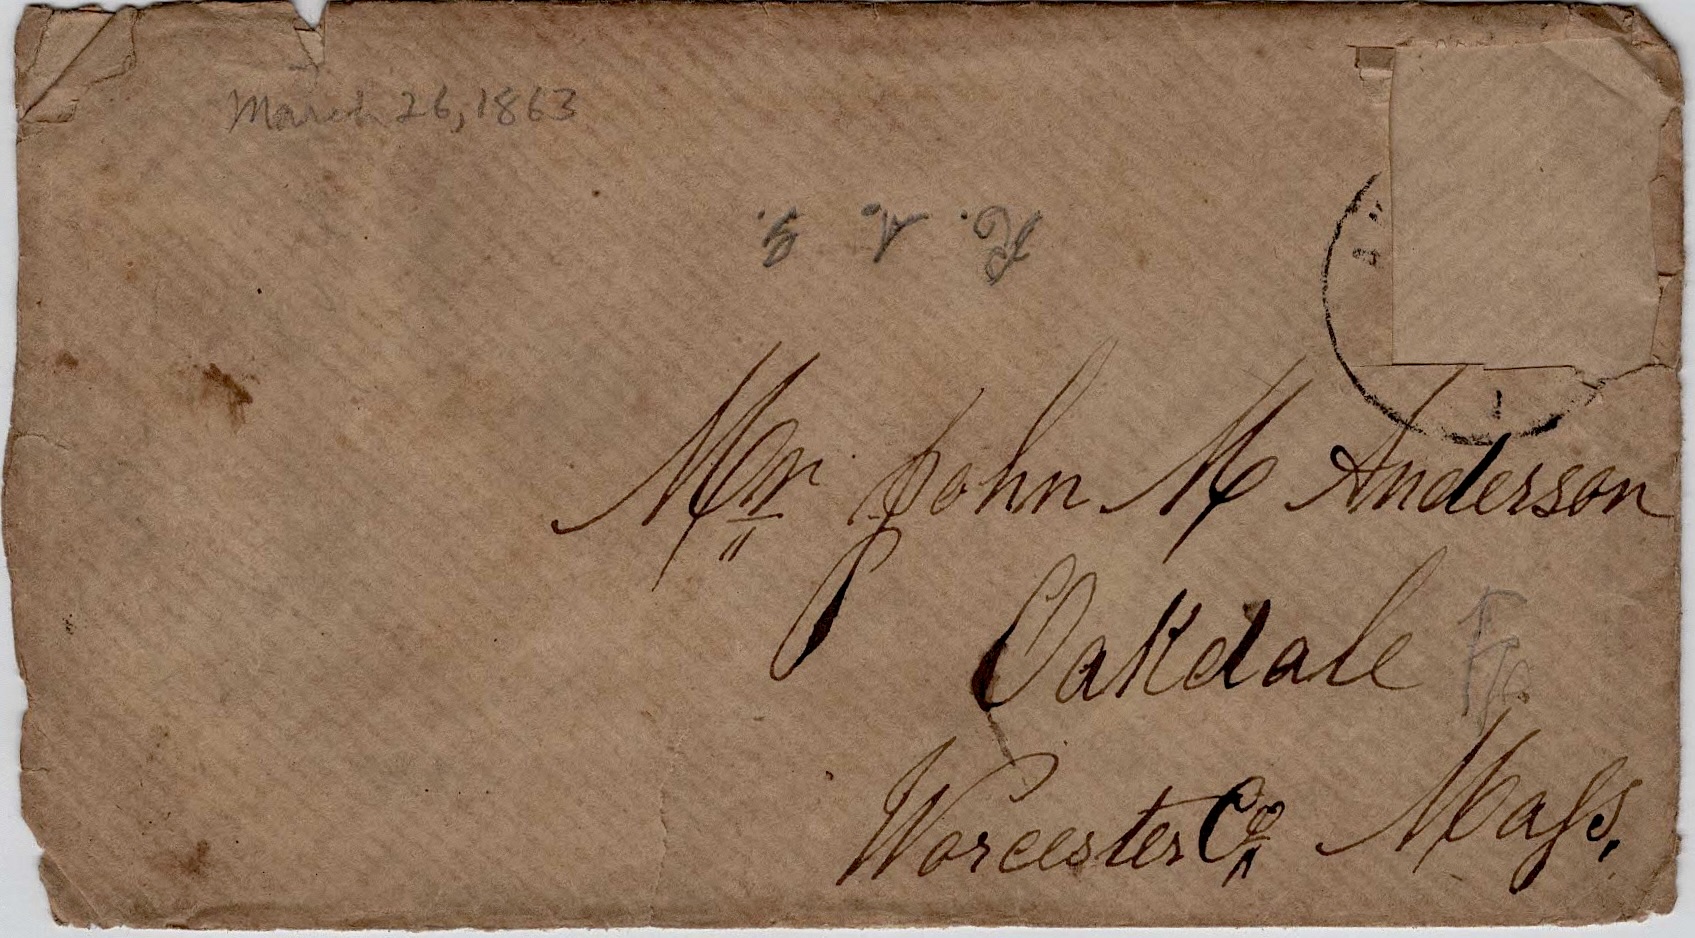 March 26, 1863
Mr. John M Anderson
Oakdale
Worcester Co Mass.